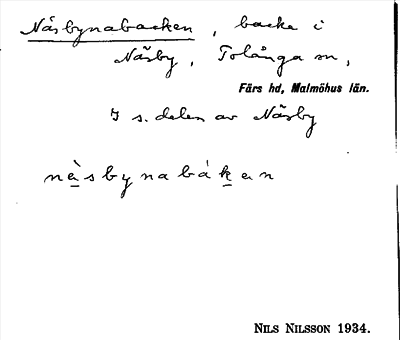 Näsbynabacken, backe i
Näsby, Tolånga sn,
Färs hd, Malmöhus län.
I s. delen av Näsby
nὲsbynabákan
NILS NILSSON 1934.